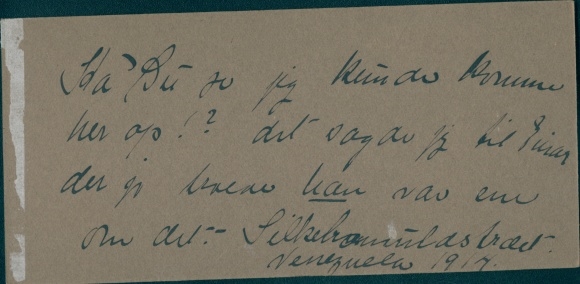 Ha Bu se jeg kunde komme
her op!? det sagde jeg til Einar
der jo troede han var ene
om det.- Silkebomuldstræet.
Venezuela 1917.